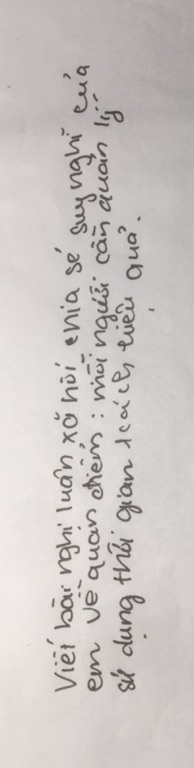 Viết bài nghị luận xã hội chia sẻ suy nghĩ của
em về quan điểm : mỗi người cần quản lý
sử dụng thời gian 1 cách hiệu quả.